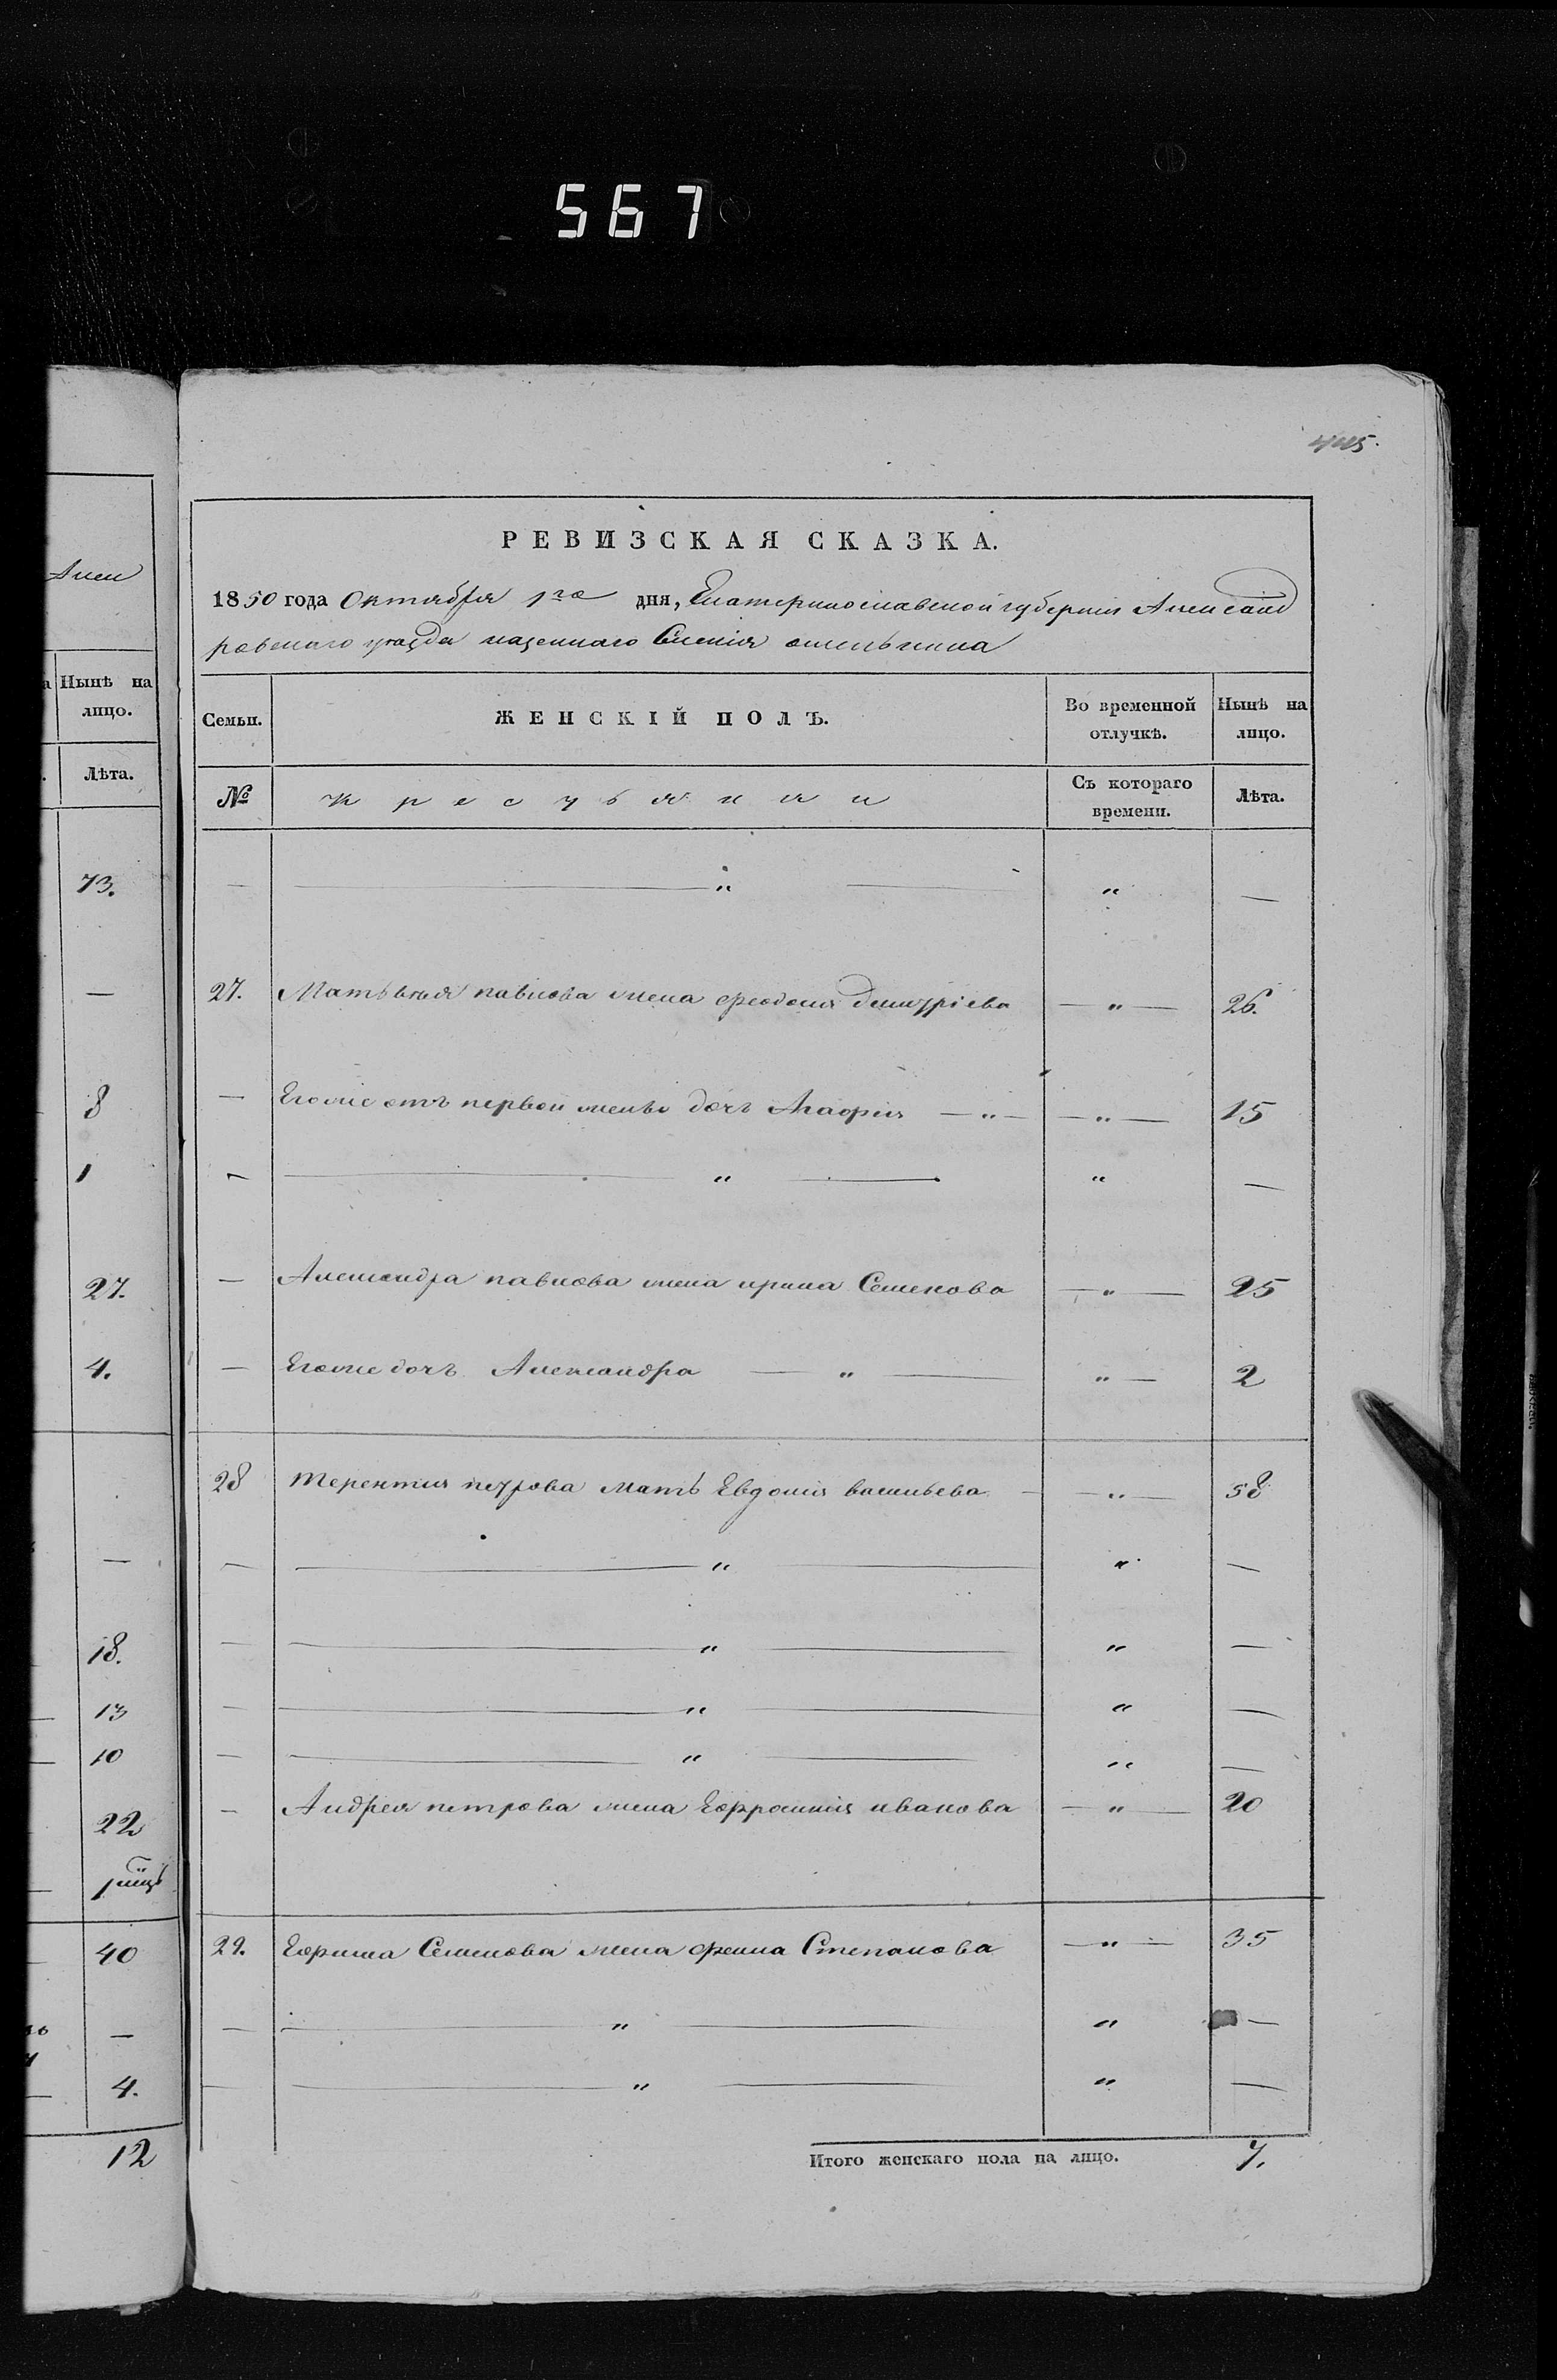 567
445.
РЕВИЗСКАЯ СКАЗКА.
1850 года Октября 1го дня, Екатеринославской губерніи Александ
ровского уезда казенного Селенія
Семьи. ЖЕНСКІЙ ПОЛЪ. Во временной отлучкѣ. Нынѣ на лицо.
№ Крестьянки Съ котораго времени. Лѣта.
— — " — " —
27. Матвѣя павлова жена феодосия дмитріева — " — 26.
— Егоже отъ первой жены дочь Агафия — " — — " — 15
— — " — " —
— Александра павлова жена ирина Семенова — " — 25
— Егоже дочь Александра — " — " — 2
28 Терентия петрова мать Евдокия васильева — — " — 58
— — " — " —
— — " — " —
— — " — " —
— — " — " —
— Андрея петрова жена Ефросиния иванова — " — 20
29. Ефима Семенова жена фекла Степанова — " — 35
— — " — " —
— — " — " —
Итого женскаго пола на лицо. 7.
Алек
Нынѣ на лицо.
Лѣта.
73.
—
8
1
27.
4.
—
18.
13
10
22
40
—
4.
12